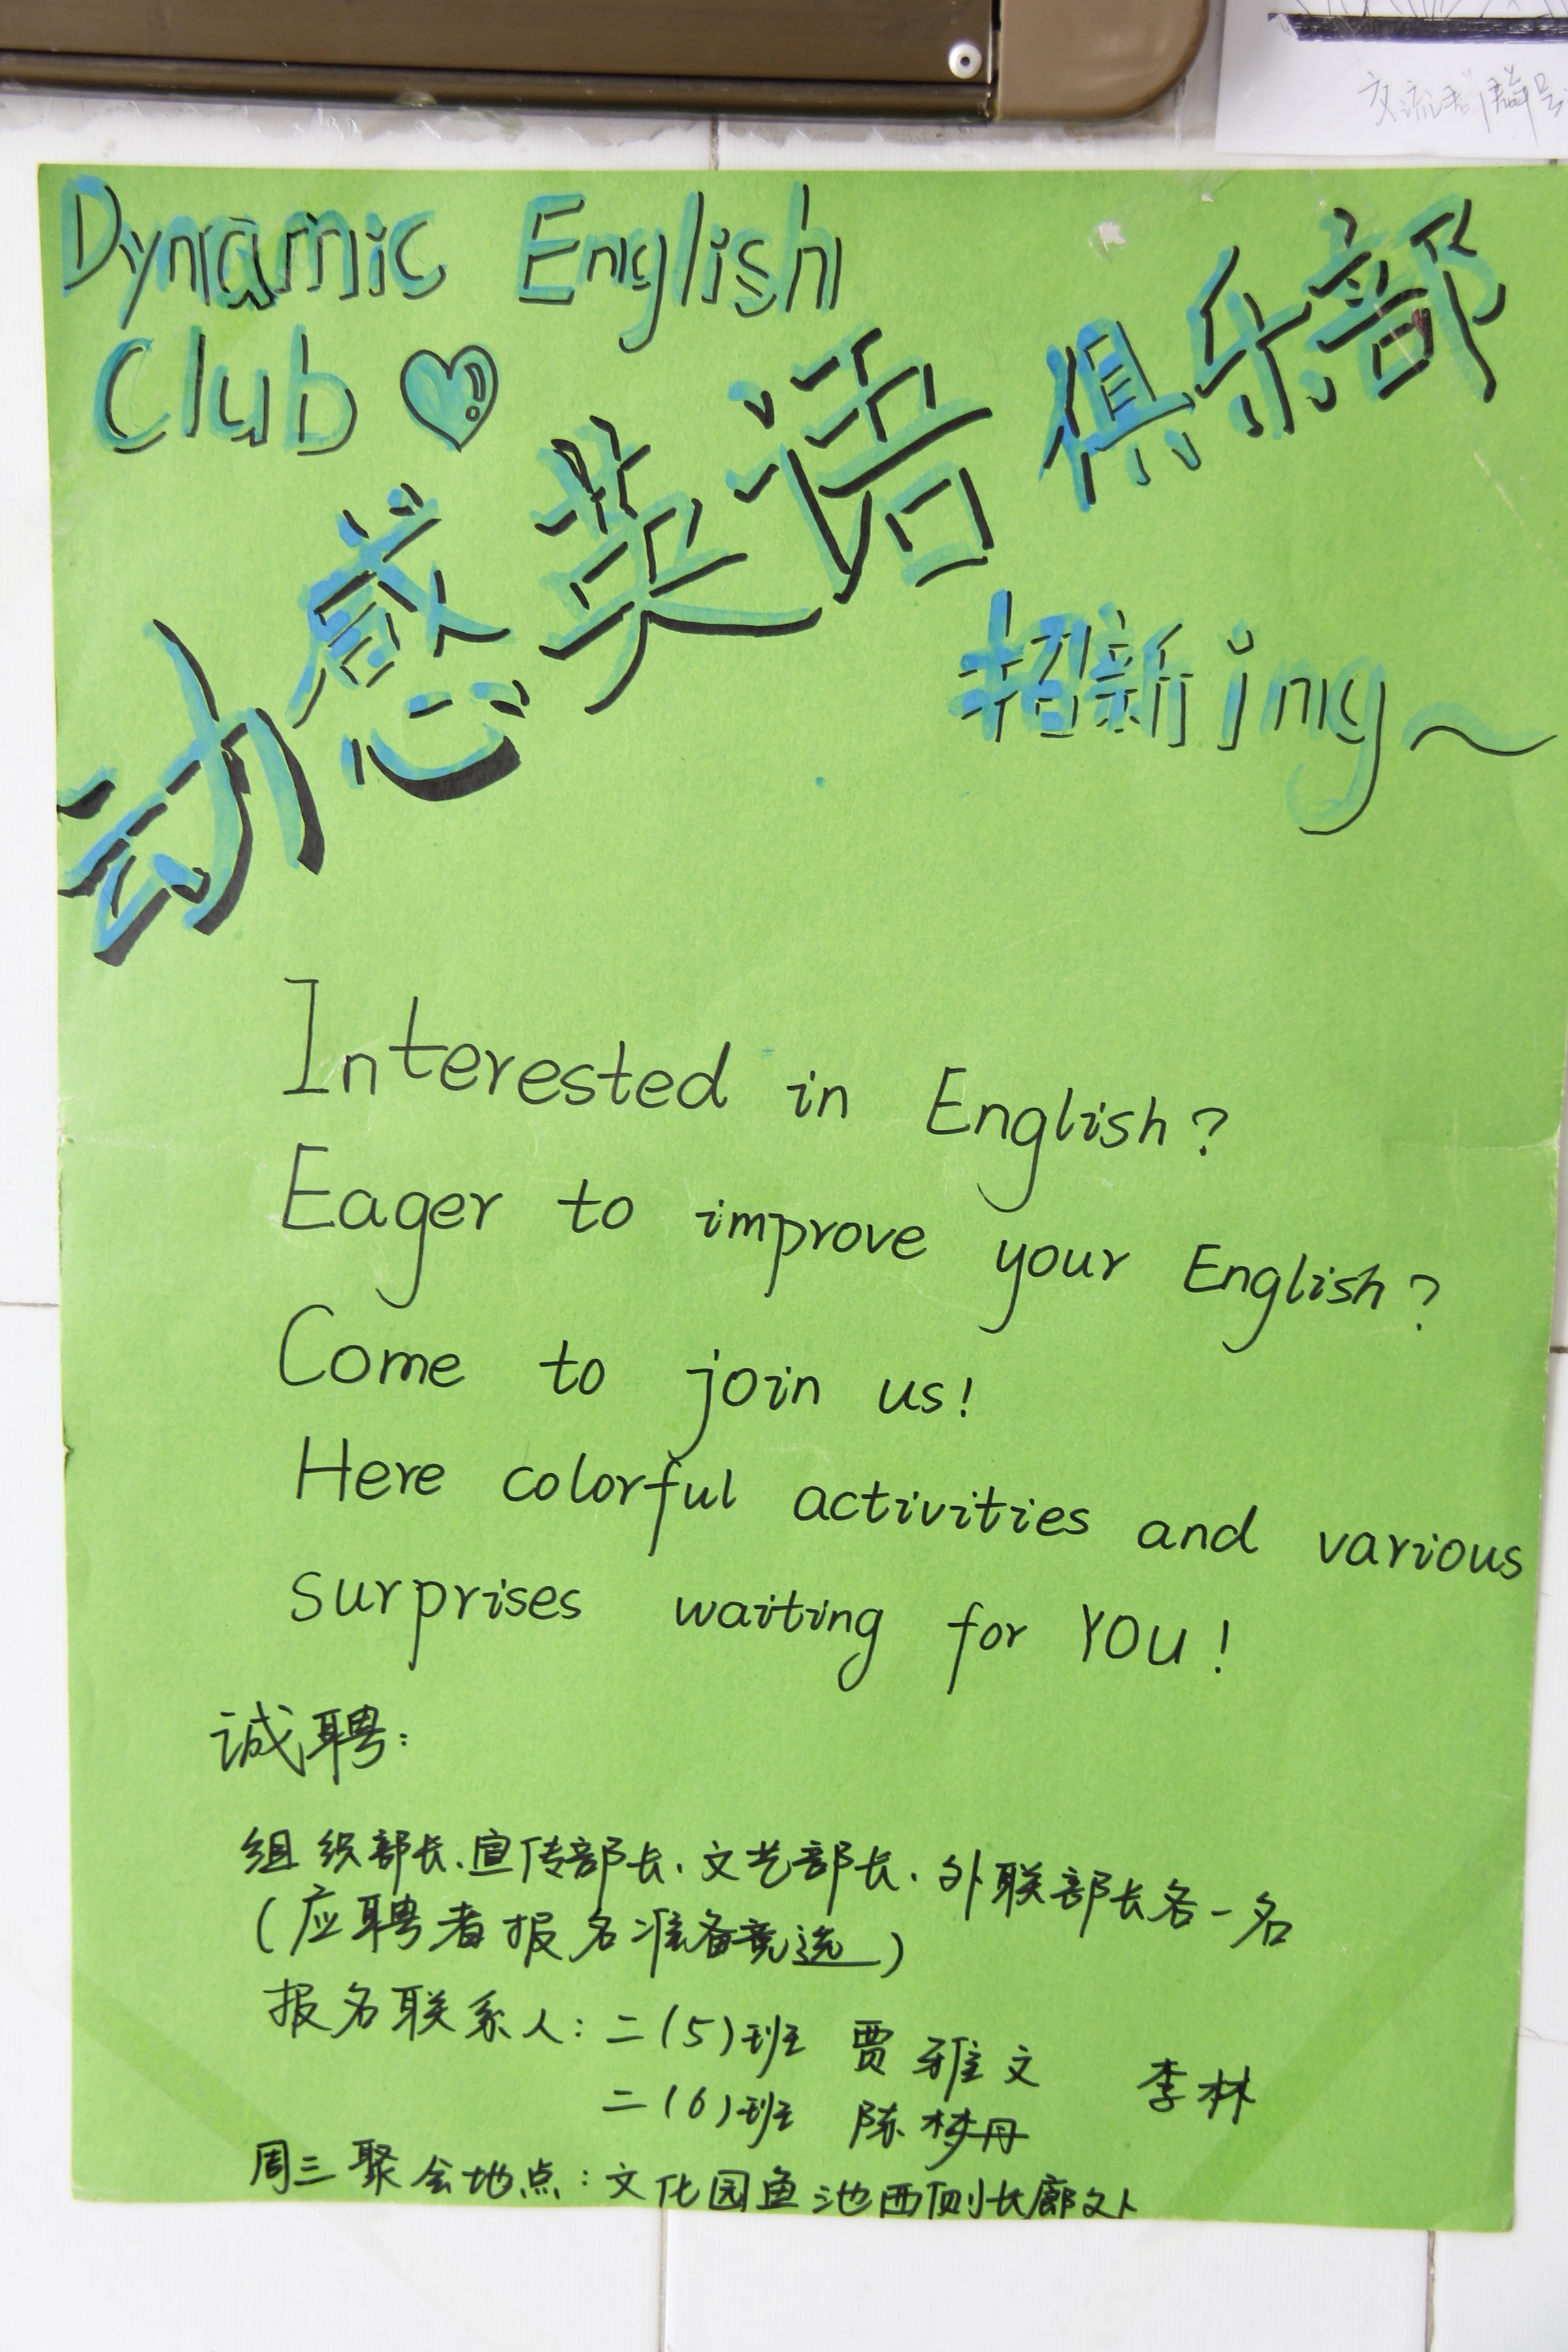 交流
Dynamic English
Club
动感英语俱乐部
招新ing~
Interested in English?
Eager to improve your English?
Come to join us!
Here colorful activities and various
surprises waiting for YOU!
诚聘:
组织部长、宣传部长、文艺部长、外联部长各一名
(应聘者报名准备竞选)
报名联系人:二(5)班 贾雅文 李林
二(6)班 陈梦丹
周三聚会地点:文化园鱼池西侧长廊处